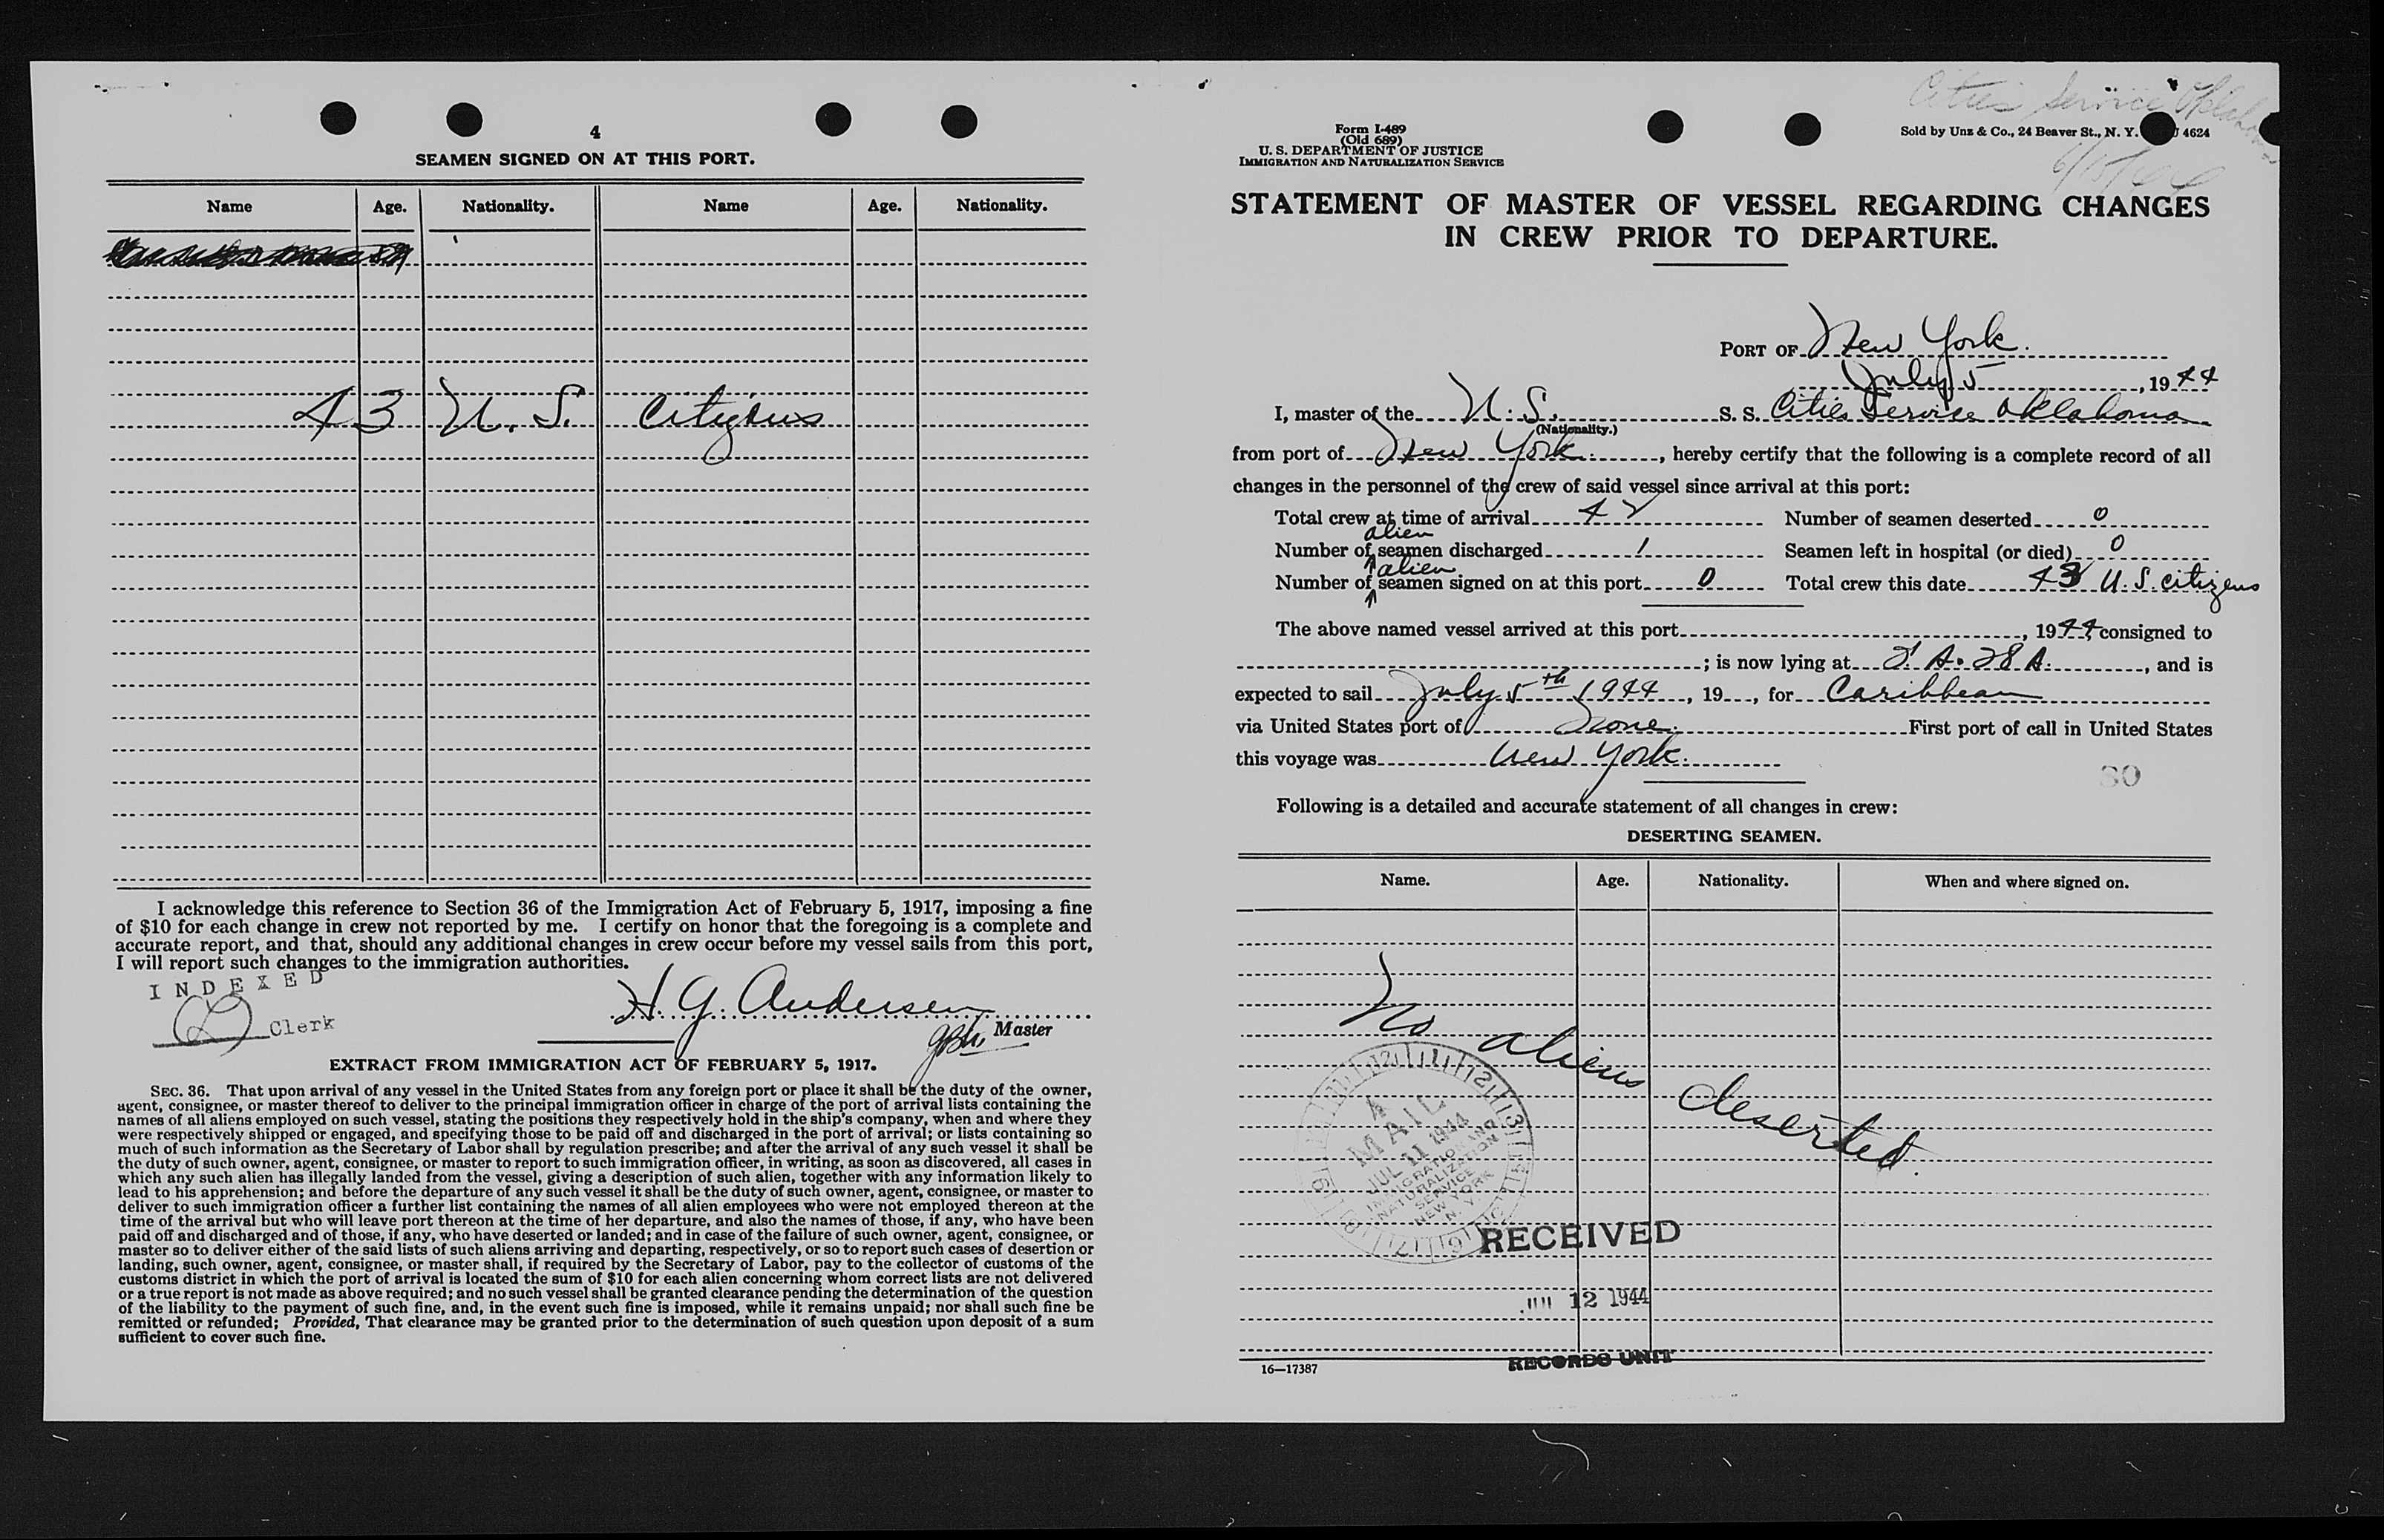 4
SEAMEN SIGNED ON AT THIS PORT.
Name Age. Nationality. Name Age. Nationality.
43 U. S. Citizens
I acknowledge this reference to Section 36 of the Immigration Act of February 5, 1917, imposing a fine
of $10 for each change in crew not reported by me. I certify on honor that the foregoing is a complete and
accurate report, and that, should any additional changes in crew occur before my vessel sails from this port,
I will report such changes to the immigration authorities.
INDEXED
Clerk
H. G. Andersen
Master
EXTRACT FROM IMMIGRATION ACT OF FEBRUARY 5, 1917.
SEC. 36. That upon arrival of any vessel in the United States from any foreign port or place it shall be the duty of the owner,
agent, consignee, or master thereof to deliver to the principal immigration officer in charge of the port of arrival lists containing the
names of all aliens employed on such vessel, stating the positions they respectively hold in the ship's company, when and where they
were respectively shipped or engaged, and specifying those to be paid off and discharged in the port of arrival; or lists containing so
much of such information as the Secretary of Labor shall by regulation prescribe; and after the arrival of any such vessel it shall be
the duty of such owner, agent, consignee, or master to report to such immigration officer, in writing, as soon as discovered, all cases in
which any such alien has illegally landed from the vessel, giving a description of such alien, together with any information likely to
lead to his apprehension; and before the departure of any such vessel it shall be the duty of such owner, agent, consignee, or master to
deliver to such immigration officer a further list containing the names of all alien employees who were not employed thereon at the
time of the arrival but who will leave port thereon at the time of her departure, and also the names of those, if any, who have been
paid off and discharged and of those, if any, who have deserted or landed; and in case of the failure of such owner, agent, consignee, or
master so to deliver either of the said lists of such aliens arriving and departing, respectively, or so to report such cases of desertion or
landing, such owner, agent, consignee, or master shall, if required by the Secretary of Labor, pay to the collector of customs of the
customs district in which the port of arrival is located the sum of $10 for each alien concerning whom correct lists are not delivered
or a true report is not made as above required; and no such vessel shall be granted clearance pending the determination of the question
of the liability to the payment of such fine, and, in the event such fine is imposed, while it remains unpaid; nor shall such fine be
remitted or refunded; Provided, That clearance may be granted prior to the determination of such question upon deposit of a sum
sufficient to cover such fine.
Cities Service Oklahoma
6/15/44
Form I-489
(Old 689)
U. S. DEPARTMENT OF JUSTICE
IMMIGRATION AND NATURALIZATION SERVICE
Sold by Unz & Co., 24 Beaver St., N. Y. 4624
STATEMENT OF MASTER OF VESSEL REGARDING CHANGES
IN CREW PRIOR TO DEPARTURE.
PORT OF New York.
July 5, 1944
I, master of the U. S. S. S. Cities Service Oklahoma
(Nationality.)
from port of New York, hereby certify that the following is a complete record of all
changes in the personnel of the crew of said vessel since arrival at this port:
Total crew at time of arrival 42 Number of seamen deserted 0
Number of alien seamen discharged 1 Seamen left in hospital (or died) 0
Number of alien seamen signed on at this port 0 Total crew this date 43 U. S. citizens
The above named vessel arrived at this port , 1944, consigned to
; is now lying at , and is
expected to sail July 5th 1944, 19 , for Caribbean
via United States port of None. First port of call in United States
this voyage was New York.
SO
Following is a detailed and accurate statement of all changes in crew:
DESERTING SEAMEN.
Name. Age. Nationality. When and where signed on.
No aliens deserted.
MAIL
JUL 11 1944
IMMIGRATION AND
NATURALIZATION
SERVICE
NEW YORK
N. Y.
RECEIVED
JUL 12 1944
RECORDS UNIT
16—17387